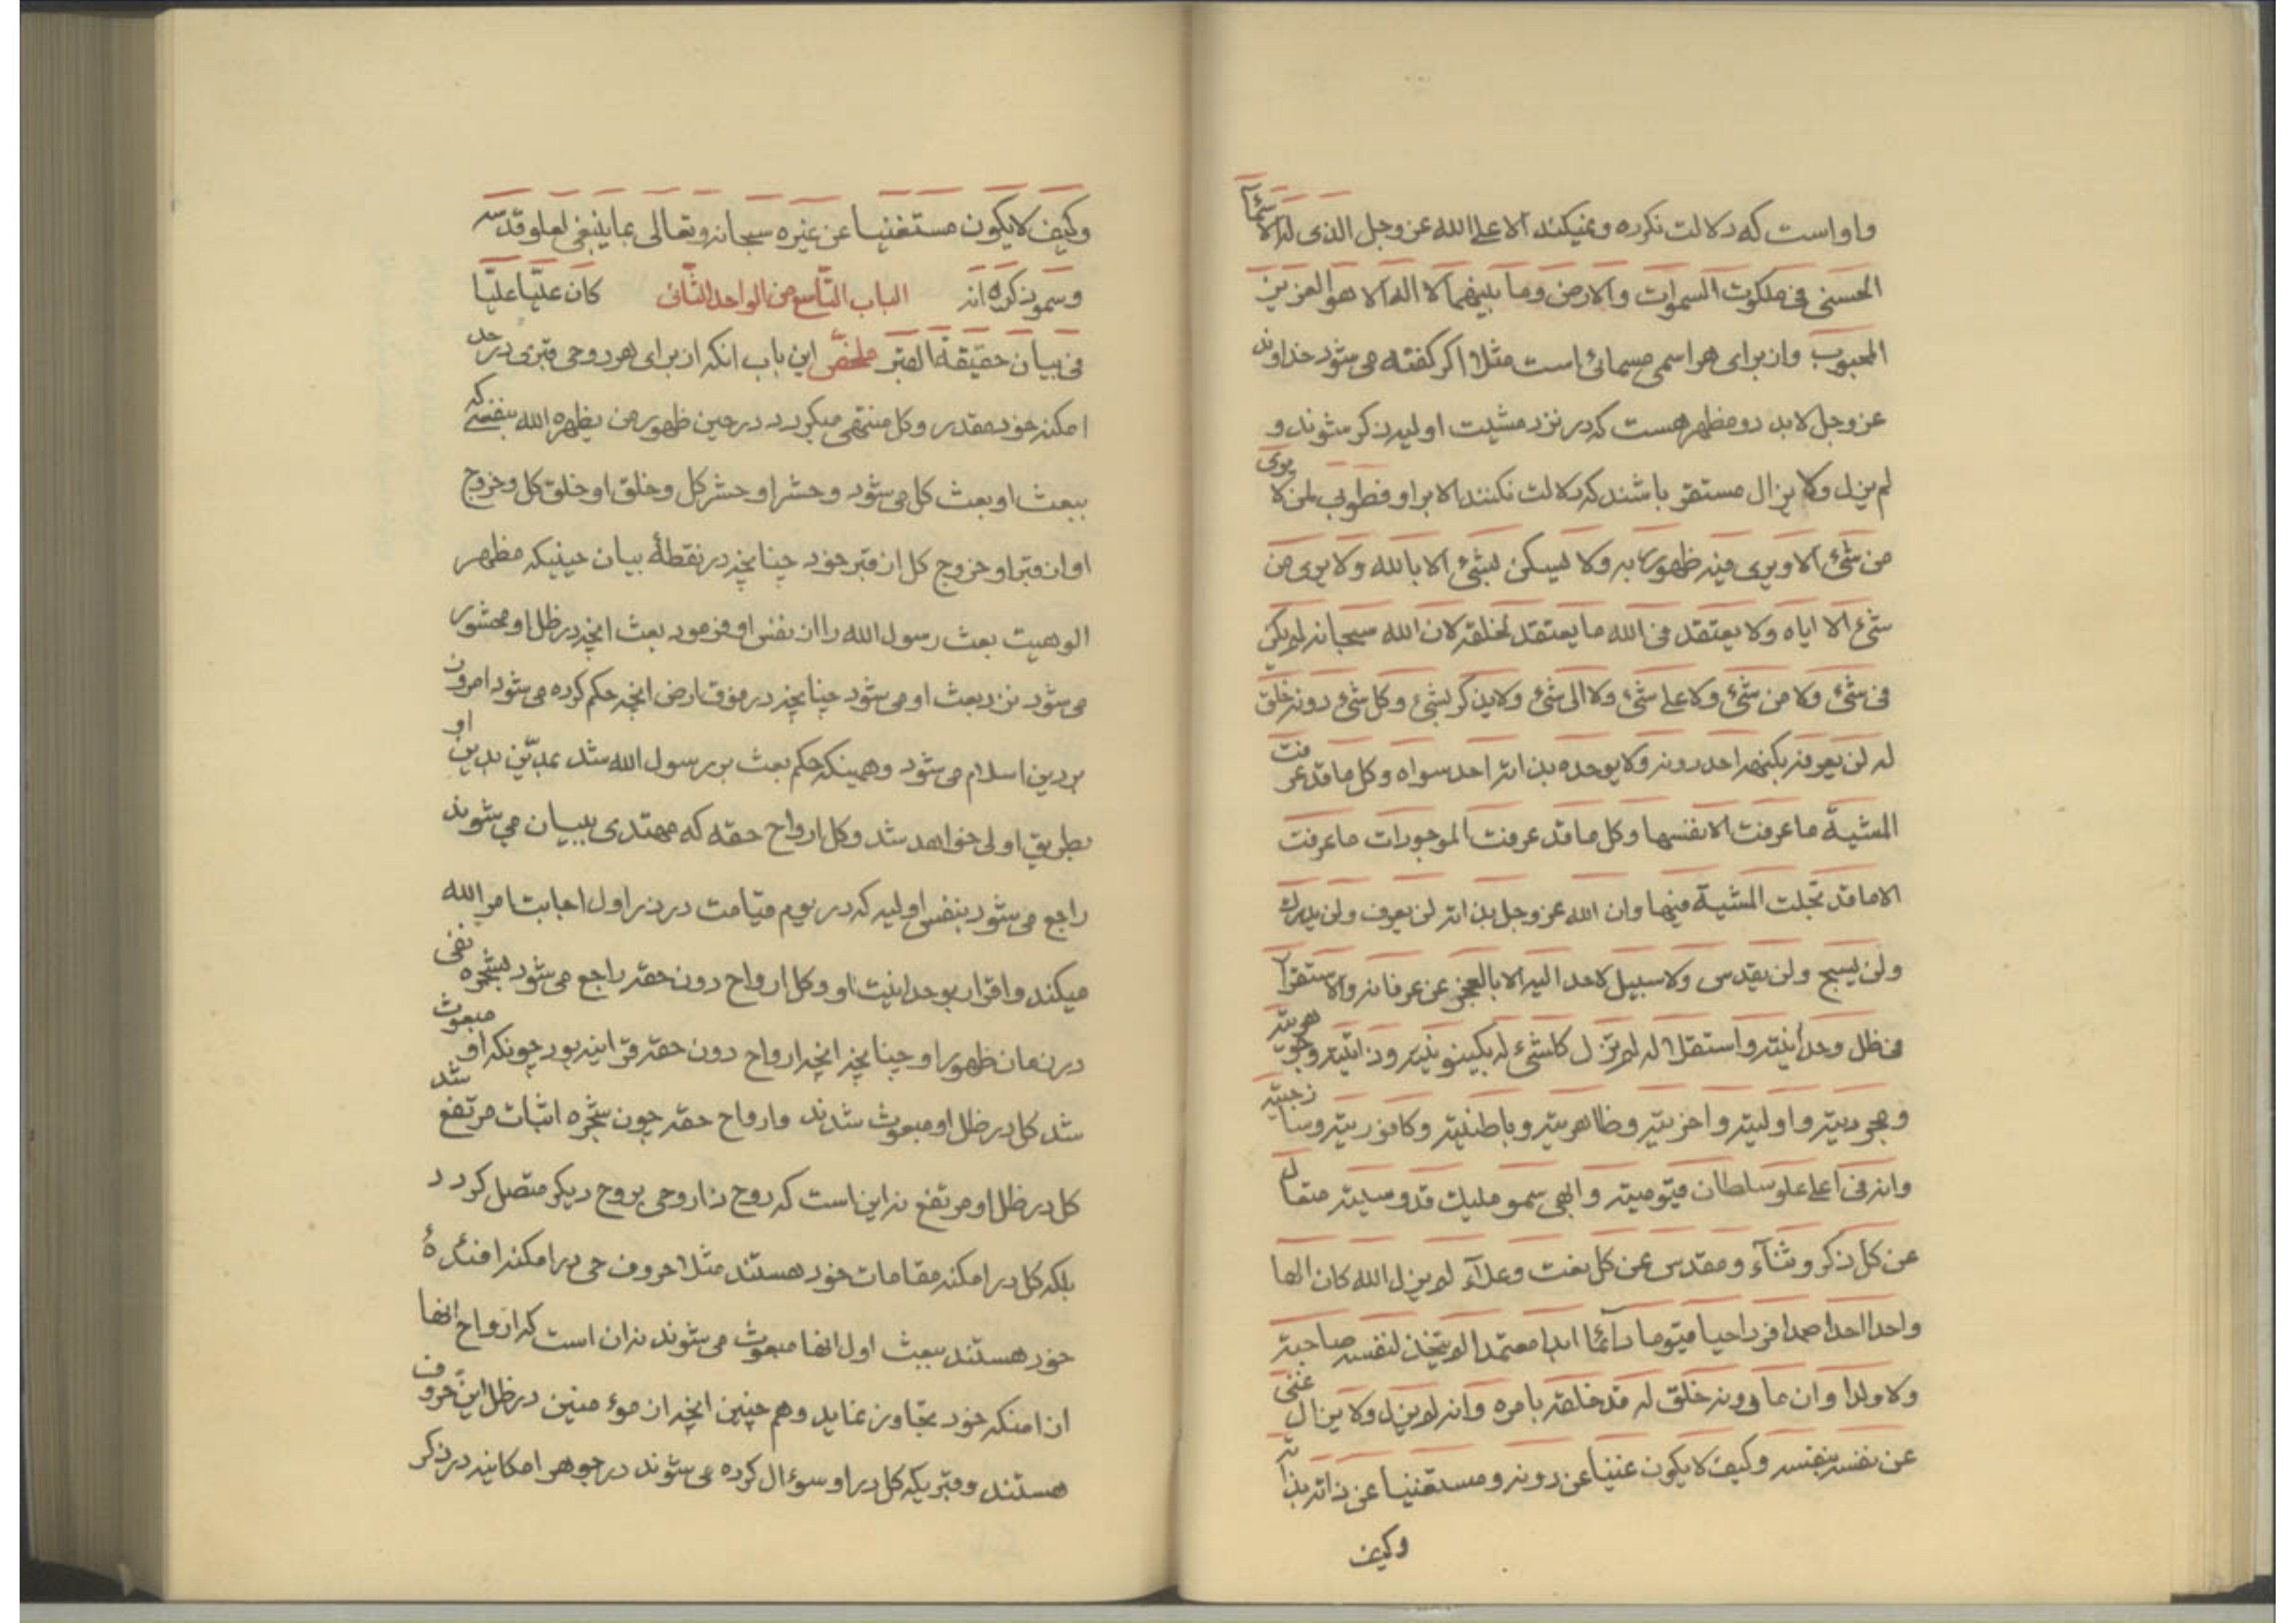 واو است که دلالت نکرده و نمیکند الا علی الله عز وجل الذی له الاسمآء
الحسنی فی ملکوت السموات والارض وما بینهما لا اله الا هو العزیز
المحبوب واز برای هر اسمی مسمائی است مثلا اکر کفته می شود خداوند
عز وجل لابد دو مظهر هست که در نزد مشیت اولیه ذکر شوند و
لم یزل ولا یزال مستقر باشند که دلالت نکنند الا بر او فطوبی لمن لا یری
من شئ الا ویری فیه ظهور ربه ولا لیسکن لبشئ الا بالله ولا یری من
شئ الا ایاه ولا یعتقد فی الله ما یعتقد لخلقه لان الله سبحانه لم یکن
فی شئ ولا من شئ ولا علی شئ ولا الی شئ ولا یذکر لبشئ وکل شئ دونه خلق
له لن یعرفه بکنهه احد دونه ولا یوحده بذاته احد سواه وکل ما قد عرفت
المشیة ما عرفت الا نفسها وکل ما قد عرفت الموجودات ما عرفت
الا ما قد تجلت المشیة فیها وان الله عز وجل بذاته لن یعرف ولن یدرک
ولن یسبح ولن یقدس ولا سبیل لاحد الیه الا بالعجز عن عرفانه والاستقرار
فی ظل وحدانیته واستقلاله لم یزل کاشئ له بکینونیته وذاتیته وهویته
وجودیته واولیته واخریته وظاهریته وباطنیته وکافوریته وساذجیته
وانه فی اعلی علو سلطان قیومیته وابهی سمو ملیک قدوسیته متعال
عن کل ذکر وثنآء ومقدس عن کل نعت وعلآء لم یزل الله کان الها
واحدا احدا صمدا فردا حیا قیوما دآئما ابدا معتمدا لم یتخذ لنفسه صاحبته
ولا ولدا وان ما دونه خلق له قد خلقه بامره وانه لم یزل ولا یزال غنی
عن نفسه بنفسه وکیف لا یکون غنیا عن دونه ومستغنیا عن ذاته بذاته
وکیف
وکیف لا یکون مستغنیا عن غیره سبحانه وتعالی عما ینبغی لعلو قدسه
وسمو ذکره انه کان علیا علیا الباب التاسع من الواحد الثانی
فی بیان حقیقة القبر ملخص این باب انکه از برای هر روحی قبری در حد
امکنه خود مقدر وکل منتهی میکردد در حین ظهور من یظهره الله بنفسی که
ببعث او بعث کل می شود وحشر او حشر کل وخلق او خلق کل وخروج
او از قبر او خروج کل از قبر خود چنانچه در نقطهٔ بیان حینیکه مظهر
الوهیت بعث رسول الله را از نفس او فرمود بعث انچه در ظل او محشور
می شود نزد بعث او می شود چنانچه در فوق ارض انچه حکم کرده می شود امروز
بر دین اسلام می شود وهمینکه حکم بعث بر رسول الله شد بمدینین بدین او
بطریق اولی خواهد شد وکل ارواح حقه که مهتدی ببیان می شوند
راجع می شود بنفس اولیه که در یوم قیامت در ذر اول اجابت امر الله
میکند واقرار بوحدانیت او وکل ارواح دون حقه راجع می شود بشجره نفی
در زمان ظهور او چنانچه انچه ارواح دون حقه قرانیه بود چونکه او مبعوث
شد کل در ظل او مبعوث شدند وارواح حقه چون شجره اثبات مرتفع شد
کل در ظل او مرتفع نه این است که روح ذا روحی بروح دیکر متصل کردد
بلکه کل در امکنه مقامات خود هستند مثلا حروف حی در امکنه افئدهٔ
خود هستند ببعث اول انها مبعوث می شوند نه ان است که ارواح انها
از امنکه خود تجاوز نماید وهم چنین انچه از موء منین در ظل این حروف
هستند وقبریکه کل در او سوءال کرده می شوند در جوهر امکانیه در ذکر